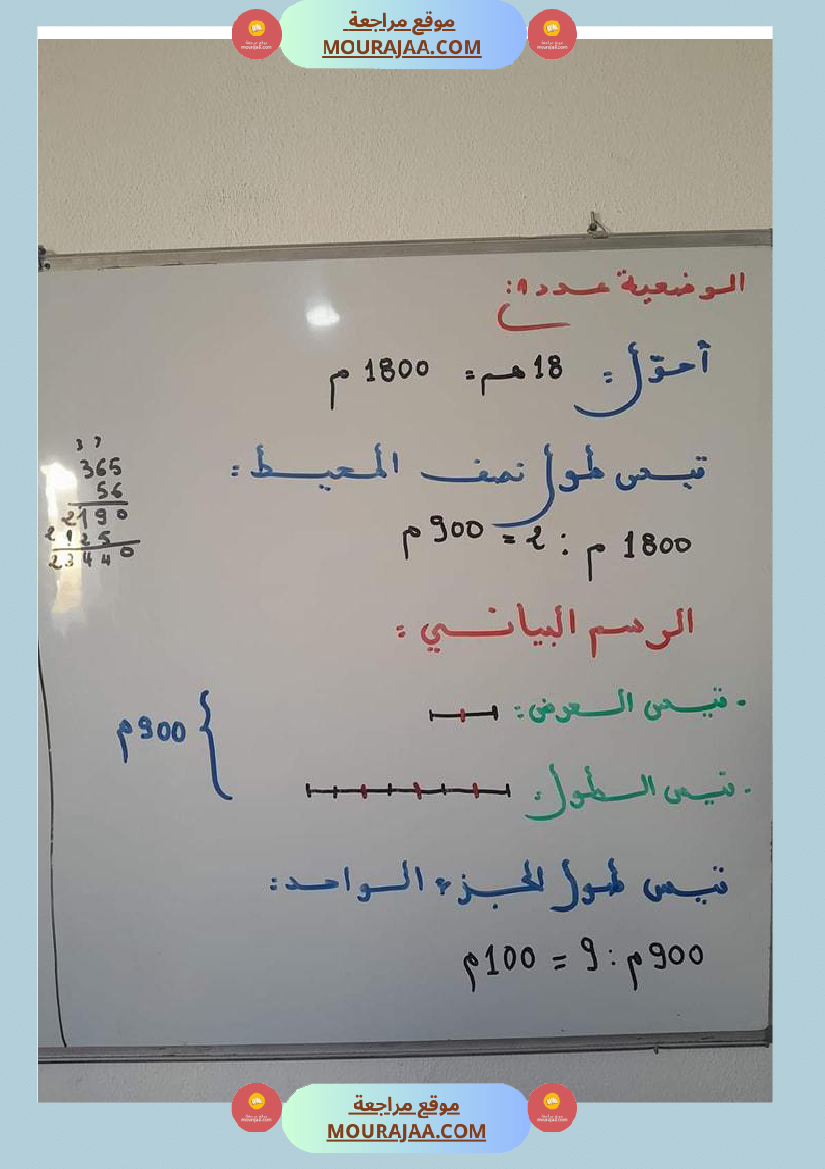 موقع مراجعة
MOURAJAA.COM
الوضعية عدد 1:
أحوّل: 18 هم = 1800 م
قيس طول نصف المحيط:
1800 م : 2 = 900 م
365
56
2190
23440
الرسم البياني:
- قيس العرض:
900 م
- قيس الطول:
قيس طول الجزء الواحد:
900 م : 9 = 100 م
موقع مراجعة
MOURAJAA.COM